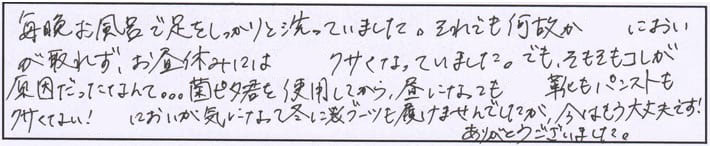 毎晩お風呂で足をしっかりと洗っていました。それでも何故か　におい
が取れず、お昼休みには　クサくなっていました。でも、そもそもコレが
原因だったなんて。。。菌ピタ君を使用してから、昼になっても　靴もパンストも
クサくない!　においが気になって冬に ブーツも履けませんでしたが、今はもう大丈夫です!
ありがとうございました。